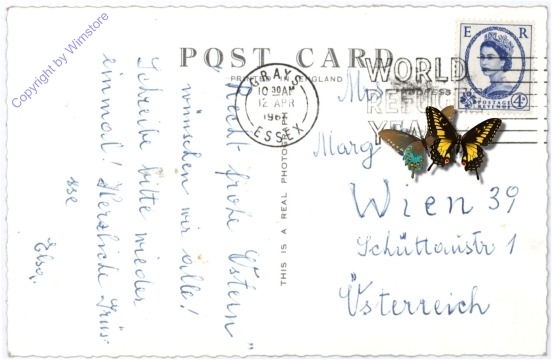 Copyright by Wimstore
POST CARD
PRINTED IN ENGLAND
THIS IS A REAL PHOTOGRAPH
"Recht frohe Ostern"
wünschen wir alle!
Schreibe bitte wieder
einmal! Herzliche Grüs-
sse
Elsa.
GRAYS
10 30AM
12 APR
ESSEX
WORLD
YEAR
E R
POSTAGE
REVENUE
4D
Marg
Wien 39
Schüttaustr 1
Österreich